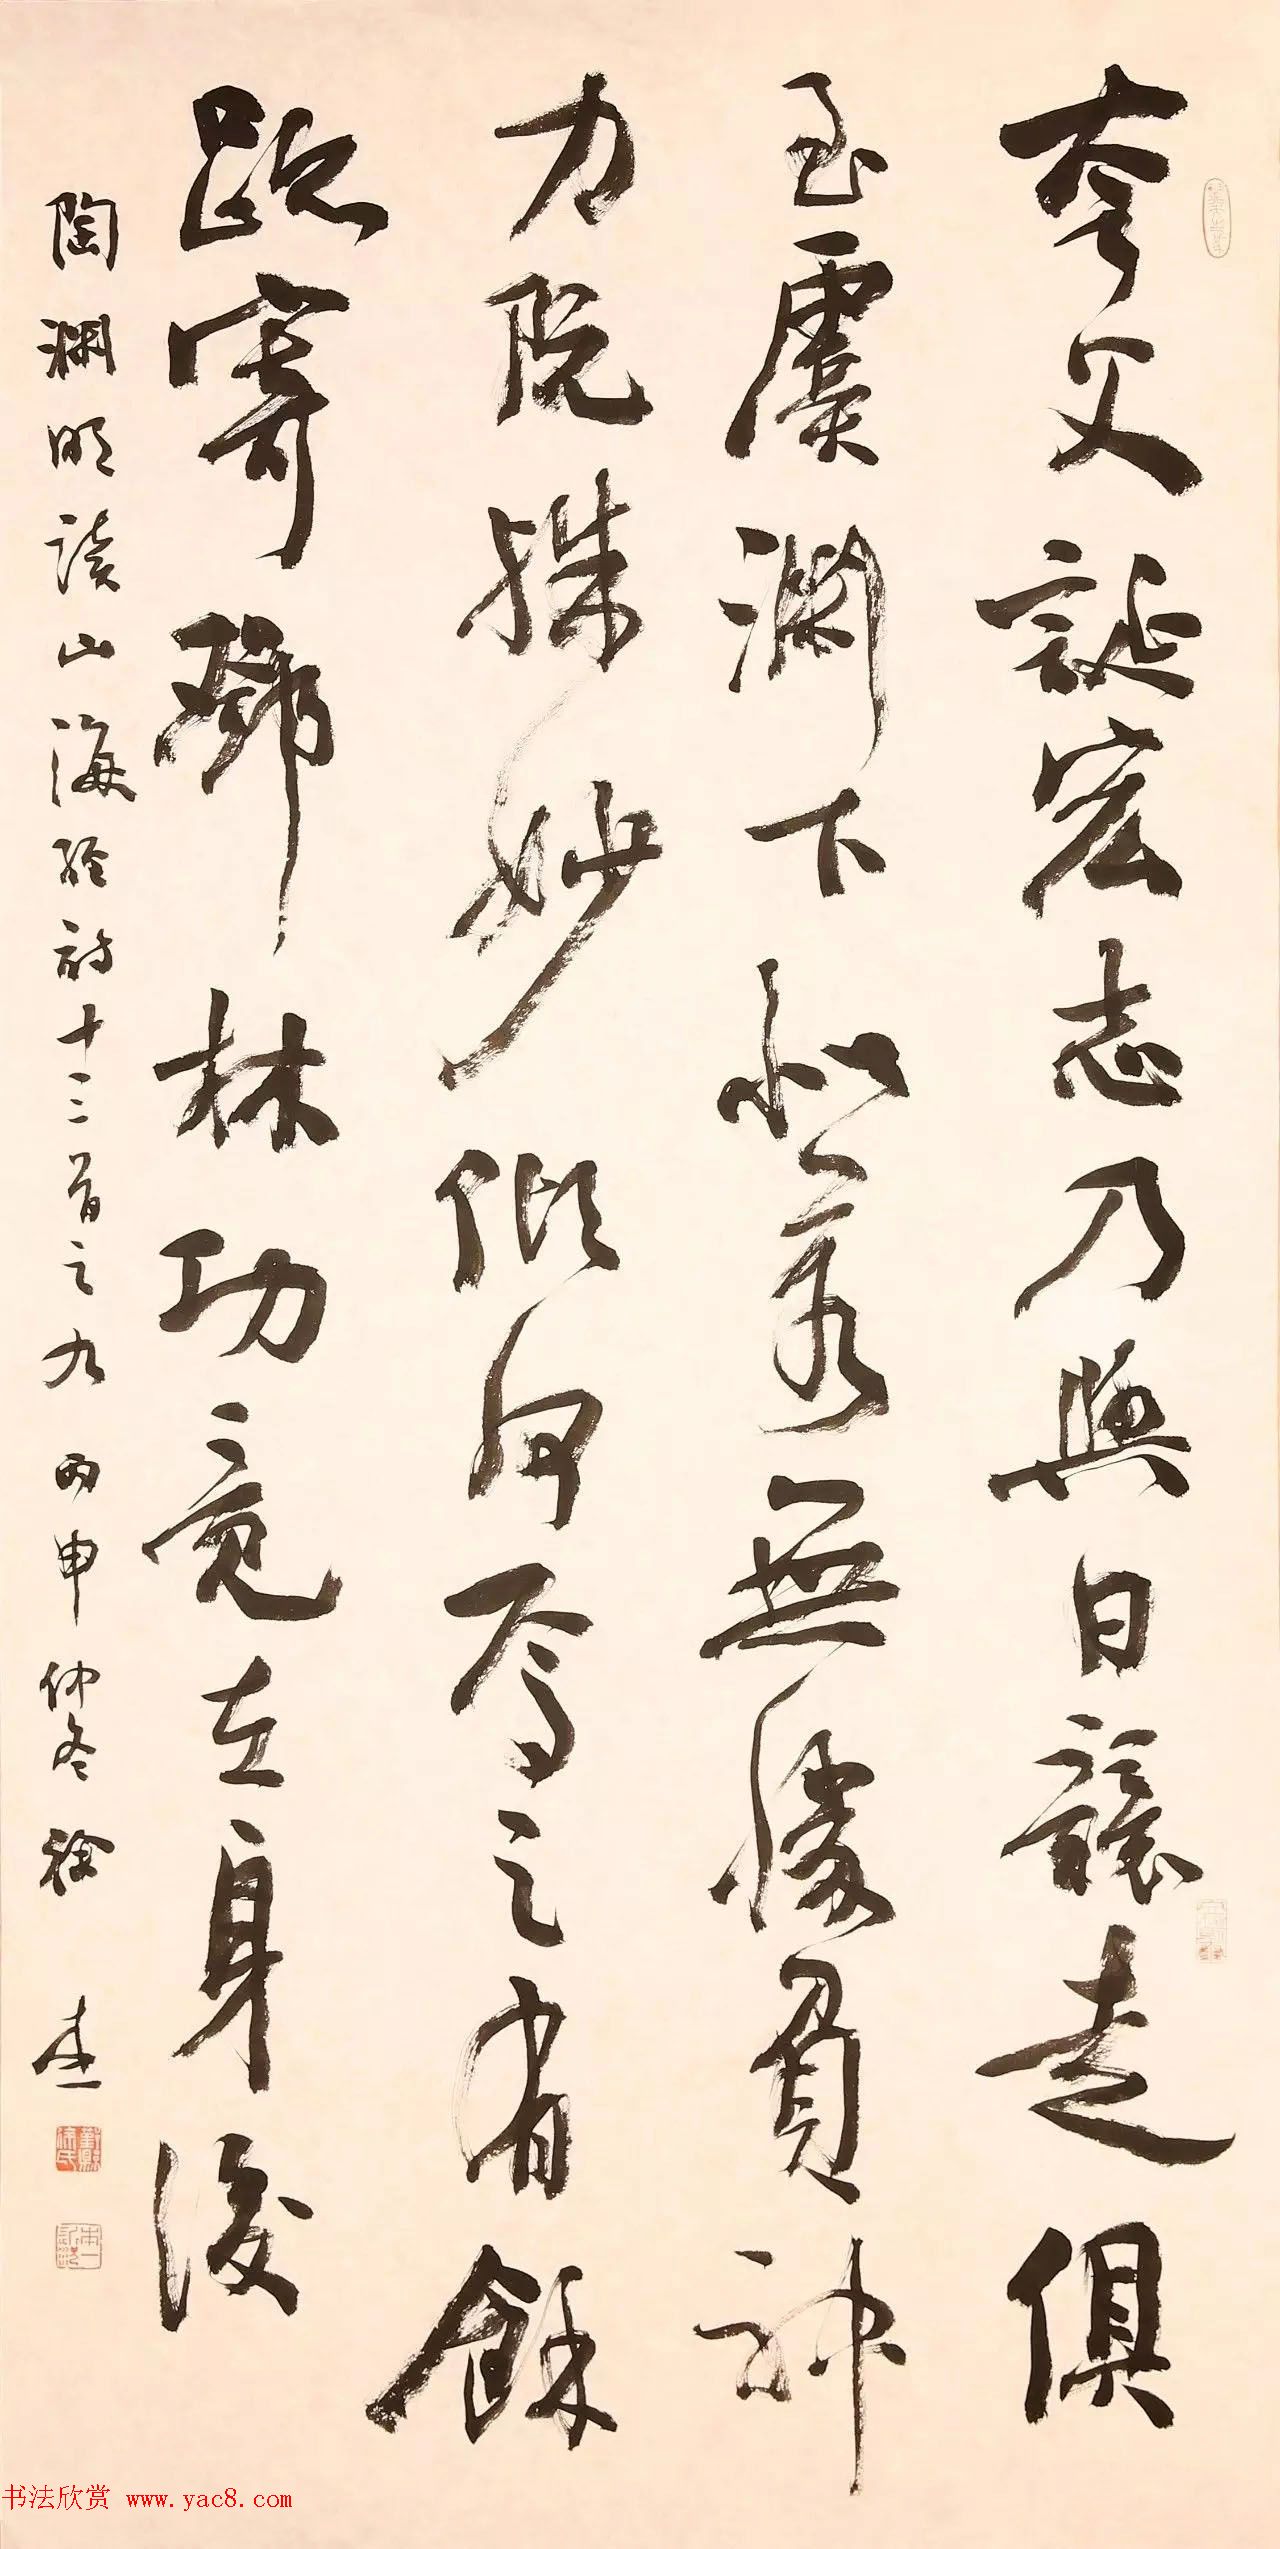 夸父誕宏志乃與日競走俱
至虞淵下似若無勝負神
力既殊妙傾河焉足有餘
跡寄鄧林功竟在身後
陶淵明讀山海經詩十三首之九 丙申仲冬 徐本一
书法欣赏 www.yac8.com